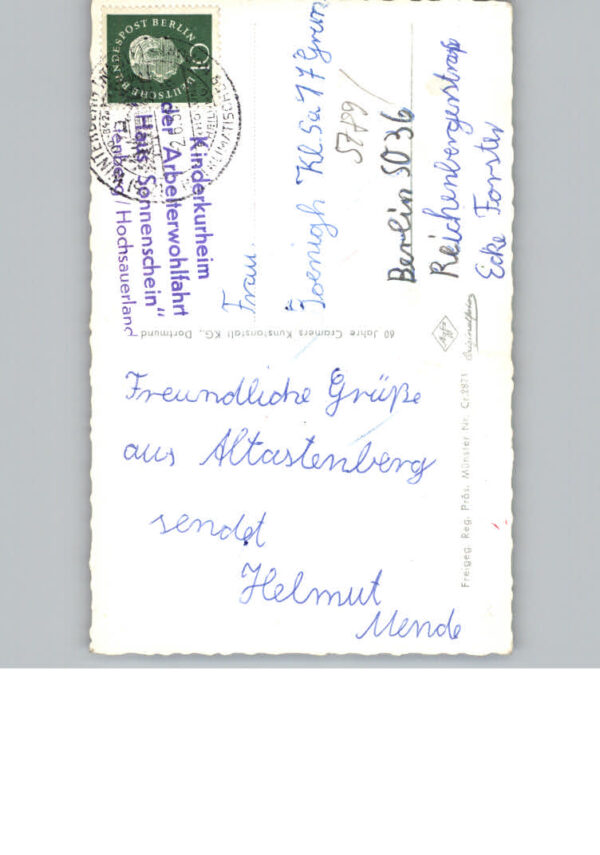 DEUTSCHE BUNDESPOST BERLIN
10
Kinderkurheim
der Arbeiterwohlfahrt
Haus „Sonnenschein“
/ Hochsauerland
Frau
Kl. 5a 17
5789
Berlin SO 36
Reichenbergerstraß
Ecke Forster
60 Jahre Cramers Kunstanstalt KG., Dortmund
Agfa
Originalfoto
Freigeg. Reg. Präs. Münster Nr. Cr. 2871
Freundliche Grüße
aus Altastenberg
sendet
Helmut
Mende